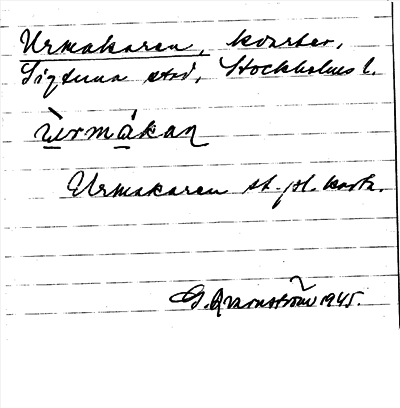 Urmakaren, kvarter,
Sigtuna stad, Stockholms l.
ùrmákaṇ
Urmakaren st.pl. karta.
G. Qvarnström 1945.